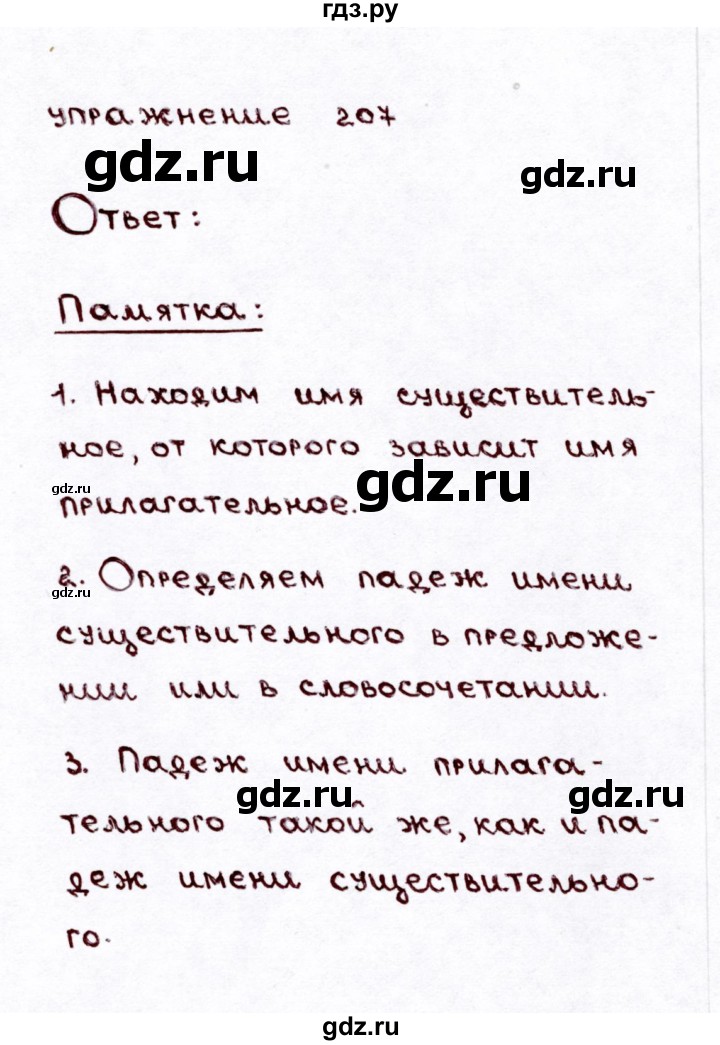 гдз.ру
упражнение 207
gdz.ru
gdz.ru
Ответ:
Памятка:
1. Находим имя существитель-
ное, от которого зависит имя
gdz.ru
gdz.ru
прилагательное.
2. Определяем падеж имени
gdz.ru
существительного в предложе-
нии или в словосочетании.
3. Падеж имени прилага-
gdz.ru
gdz.ru
тельного такой же, как и па-
деж имени существительно-
го.
gdz.ru